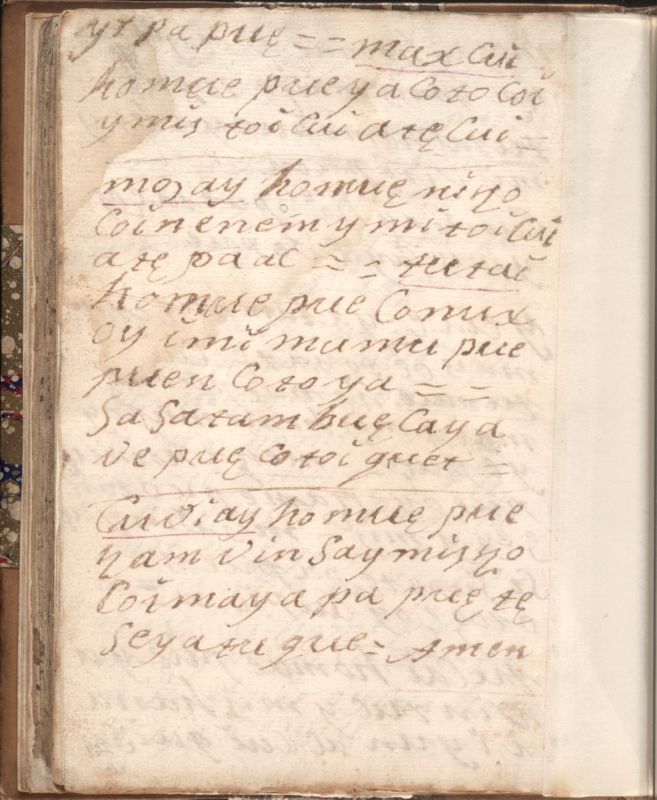 yt pa puę = = maxcui
homue pueya Cotocoi
y mis toi Cui atę Cui =
mozay homuę nisyo
Coinenem y mi toi Cui
atę paac = = tutai
homue pue Comux
oy imi mumu pue
puen Cotoya = =
Sa Satam buę Caya
ve puę Cotoi quet =
Cuviay homuę pue
ŋam vin Say misŋo
Coimaya pa puę tę
Seyatu que = Amen